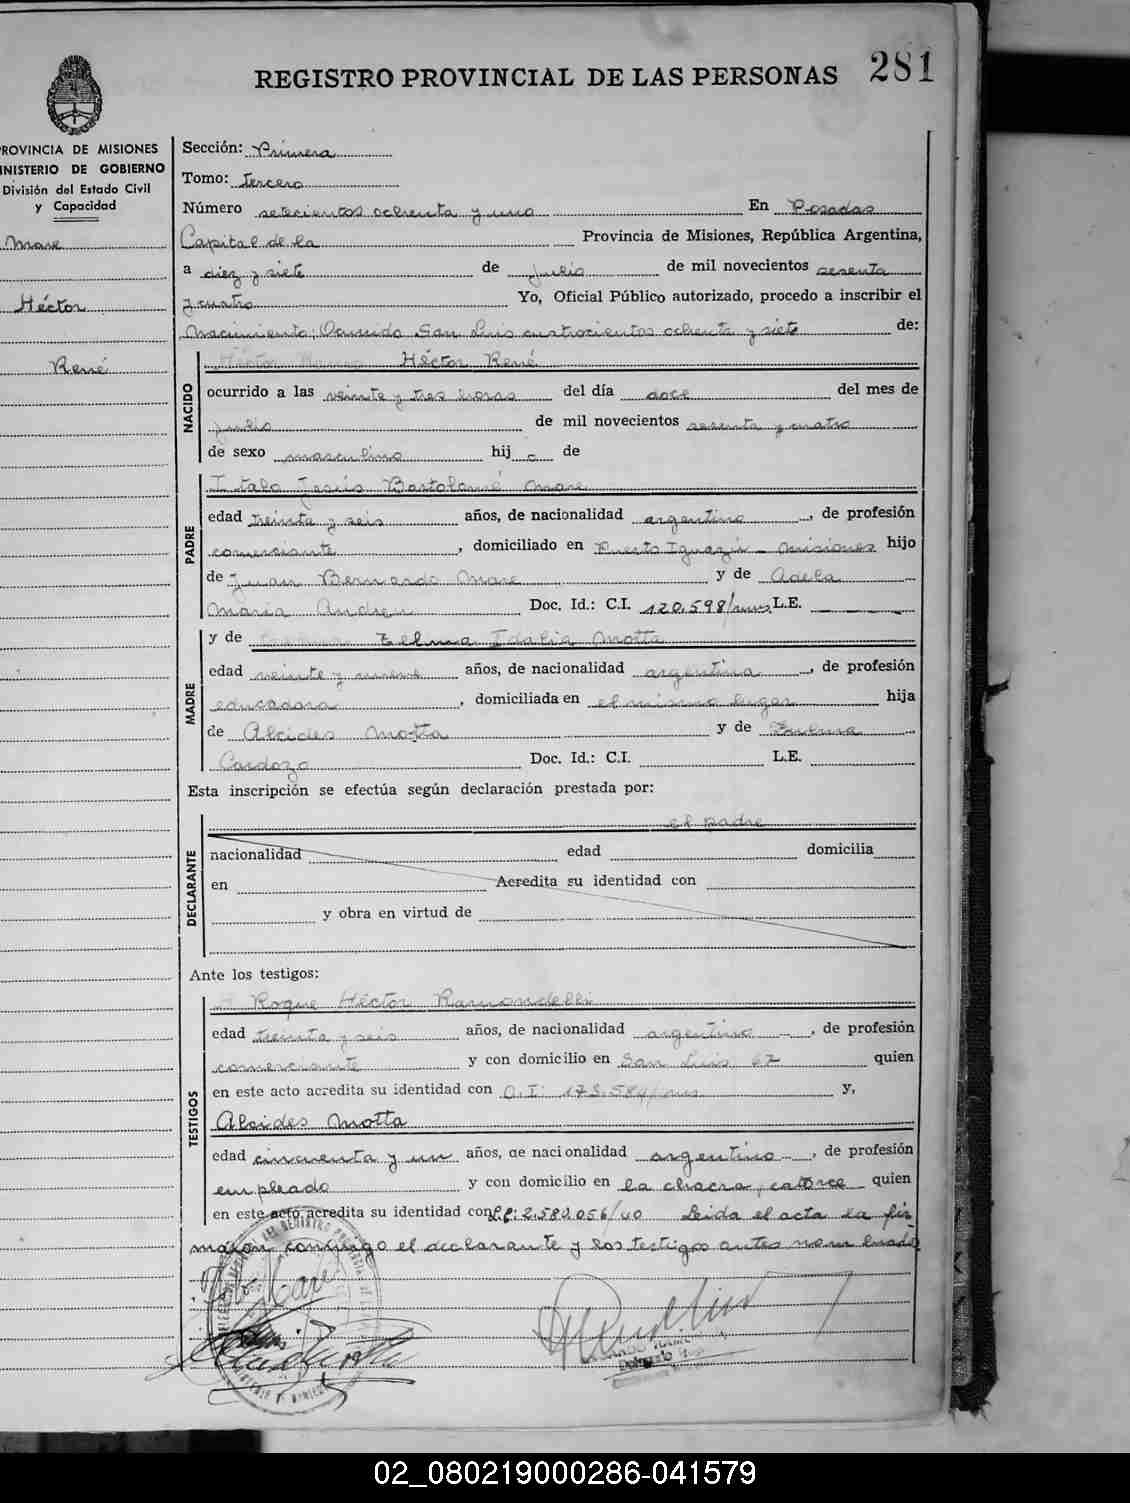 281
REGISTRO PROVINCIAL DE LAS PERSONAS
ROVINCIA DE MISIONES
INISTERIO DE GOBIERNO
División del Estado Civil
y Capacidad
Mare
Héctor
René
Sección: Primera
Tomo: Tercero
Número setecientos ochenta y uno En Posadas
Capital de la Provincia de Misiones, República Argentina,
a diez y siete de Julio de mil novecientos sesenta
y cuatro Yo, Oficial Público autorizado, procedo a inscribir el
Nacimiento; Ocurrido San Luis cuatrocientos ochenta y siete de:
NACIDO
Héctor René
ocurrido a las veinte y tres horas del día doce del mes de
Julio de mil novecientos sesenta y cuatro
de sexo masculino hij o de
PADRE
Italo Jesús Bartolomé Mare
edad treinta y seis años, de nacionalidad argentino, de profesión
comerciante, domiciliado en Puerto Iguazú - Misiones hijo
de Juan Bernardo Mare y de Adela
María Andreu Doc. Id.: C.I. 120.598/mnes L.E.
MADRE
y de Zelma Idalia Motta
edad veinte y nueve años, de nacionalidad argentina, de profesión
educadora, domiciliada en el mismo lugar hija
de Alcides Motta y de Zulma
Cardozo Doc. Id.: C.I. L.E.
Esta inscripción se efectúa según declaración prestada por:
DECLARANTE
el padre
nacionalidad edad domicilia
en Acredita su identidad con
y obra en virtud de
Ante los testigos:
TESTIGOS
Roque Héctor Ramondelli
edad treinta y seis años, de nacionalidad argentino, de profesión
comerciante y con domicilio en San Luis 67 quien
en este acto acredita su identidad con C.I: 173.584/mnes y,
Alcides Motta
edad cincuenta y un años, de nacionalidad argentino, de profesión
empleado y con domicilio en la chacra catorce quien
en este acto acredita su identidad con L.E: 2.582.056/40 Leida el acta la fir
maron conmigo el declarante y los testigos antes nombrados
Delegado
02_080219000286-041579